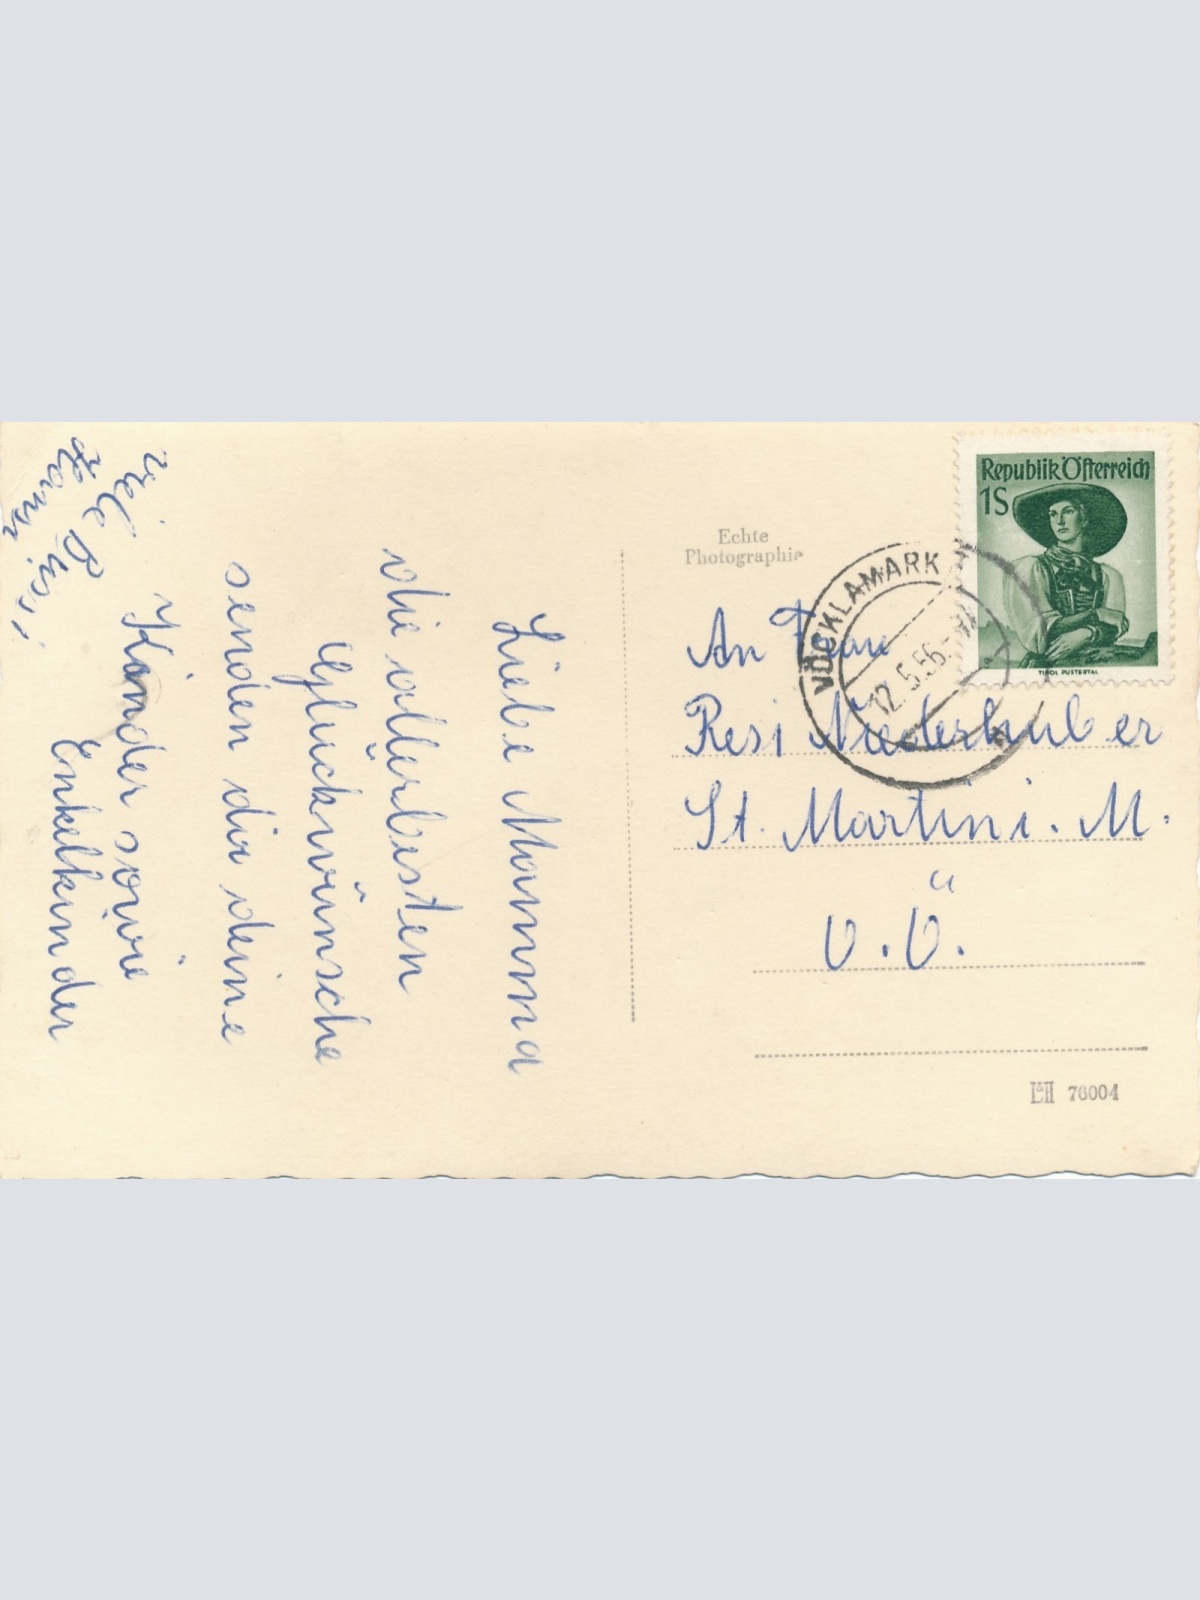 Liebe Mamma
die allerbesten
Glückwünsche
senden dir deine
Kinder sowie
Enkelkinder
Echte
Photographie
Republik Österreich
1S
TIROL PUSTERTAL
VÖCKLAMARKT
12.5.56
An Frau
Resi Niederhuber
St. Martin i. M.
O.Ö.
76004